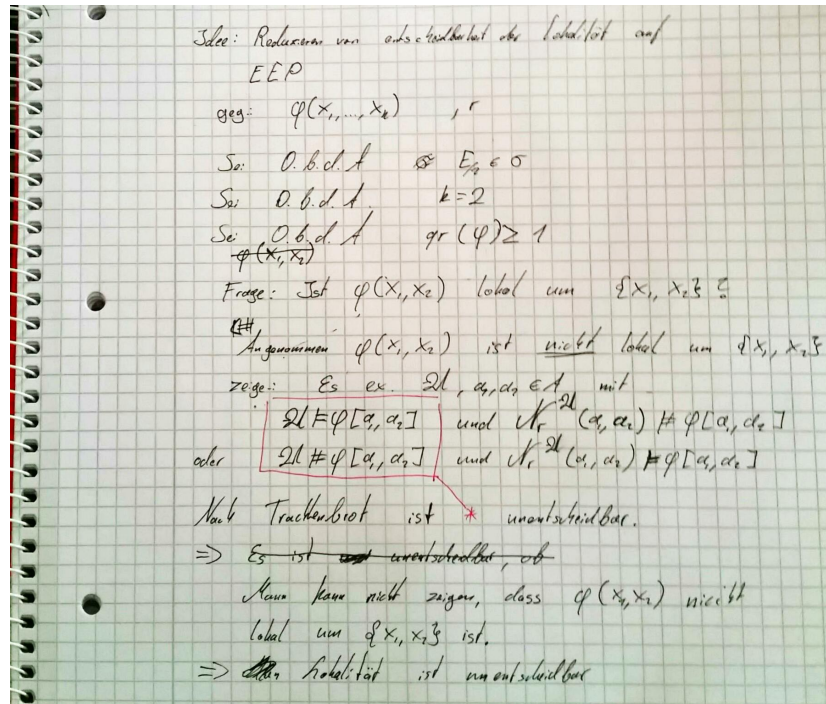 Idee: Reduzieren von entscheidbarkeit der Lokalität auf
EEP
geg.: φ(x₁,...,xₖ) , r
Sei O.B.d.A E/₂ ∈ σ
Sei O.B.d.A. k=2
Sei O.B.d.A qr(φ) ≥ 1
φ(x₁,x₂)
Frage: Ist φ(x₁,x₂) lokal um {x₁,x₂}?
Angenommen φ(x₁,x₂) ist nicht lokal um {x₁,x₂}
zeige: Es ex. 𝔄, a₁,a₂ ∈ A mit
𝔄 ⊨ φ[a₁,a₂] und 𝒩ᵣ^𝔄(a₁,a₂) ⊭ φ[a₁,a₂]
oder 𝔄 ⊭ φ[a₁,a₂] und 𝒩ᵣ^𝔄(a₁,a₂) ⊨ φ[a₁,a₂]
Nach Trachtenbrot ist * unentscheidbar.
=> Es ist unentscheidbar, ob
Mann kann nicht zeigen, dass φ(x₁,x₂) nicht
lokal um {x₁,x₂} ist.
=> Lokalität ist unentscheidbar